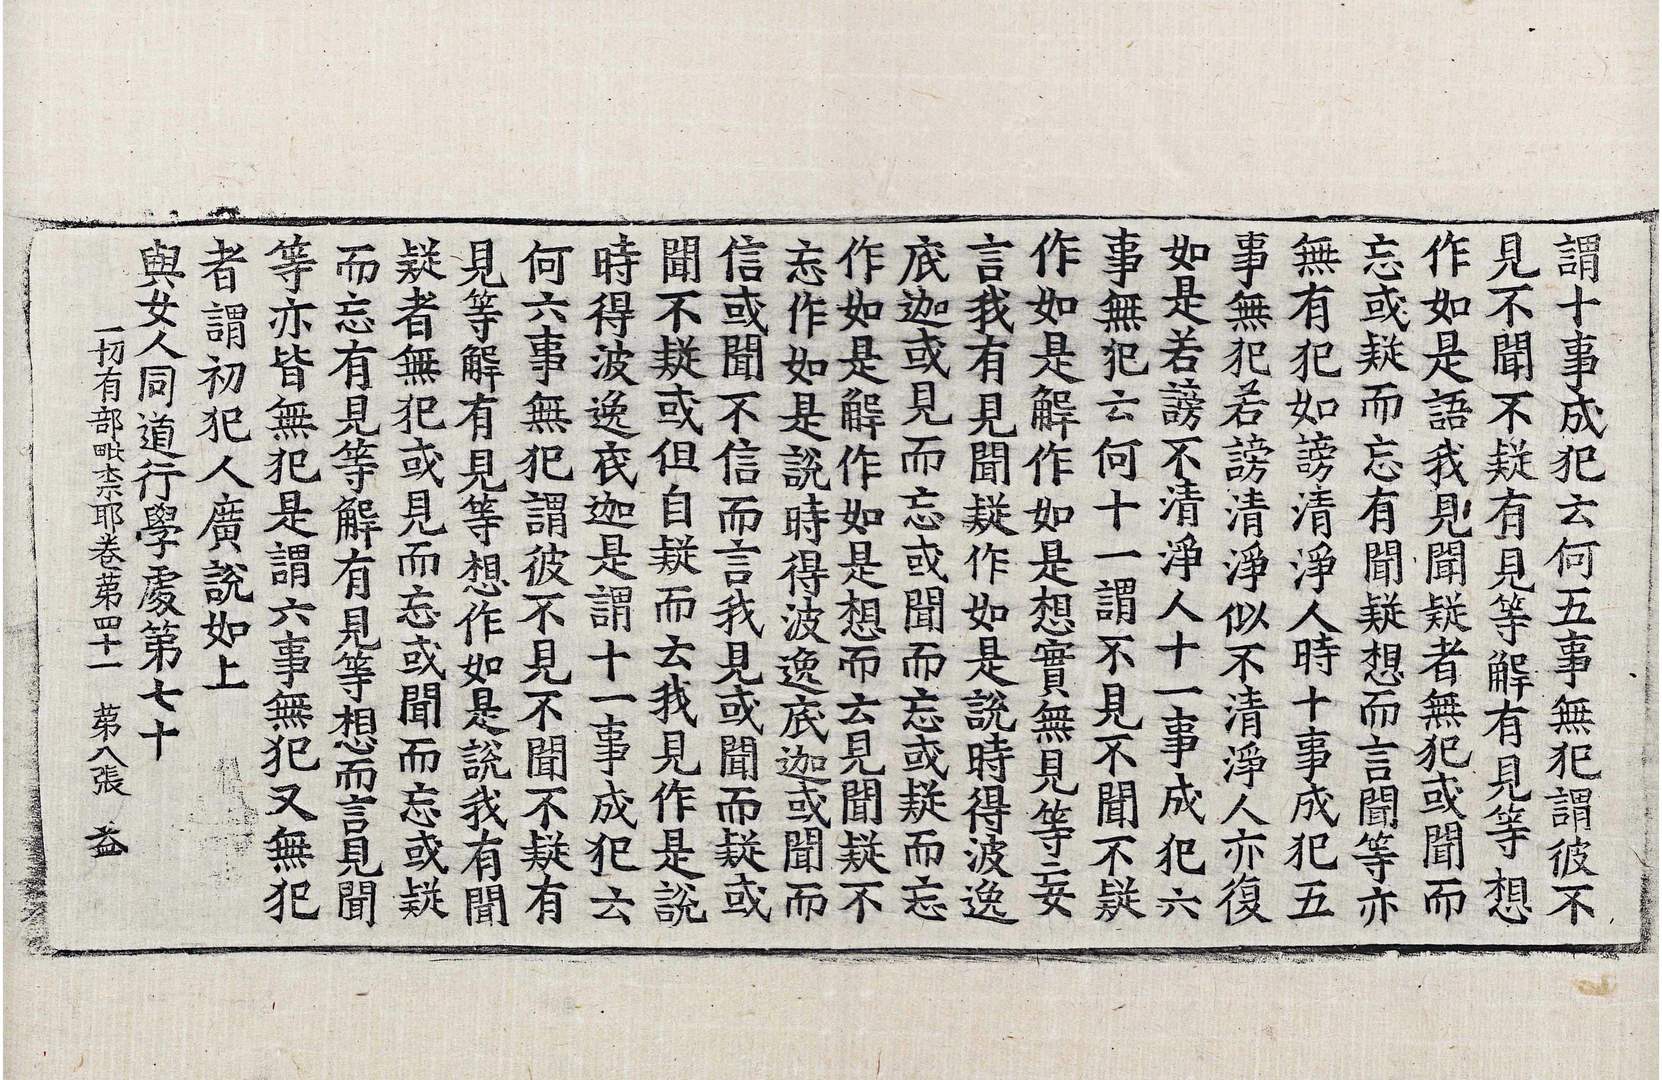 謂十事成犯云何五事無犯謂彼不
見不聞不疑有見等解有見等想
作如是語我見聞疑者無犯或聞而
忘或疑而忘有聞疑想而言聞等亦
無有犯如謗清淨人時十事成犯五
事無犯若謗清淨似不清淨人亦復
如是若謗不清淨人十一事成犯六
事無犯云何十一謂不見不聞不疑
作如是解作如是想實無見等妄
言我有見聞疑作如是說時得波逸
底迦或見而忘或聞而忘或疑而忘
作如是解作如是想而云見聞疑不
忘作如是說時得波逸底迦或聞而
信或聞不信而言我見或聞而疑或
聞不疑或但自疑而云我見作是說
時得波逸底迦是謂十一事成犯云
何六事無犯謂彼不見不聞不疑有
見等解有見等想作如是說我有聞
疑者無犯或見而忘或聞而忘或疑
而忘有見等解有見等想而言見聞
等亦皆無犯是謂六事無犯又無犯
者謂初犯人廣說如上
與女人同道行學處第七十
一切有部毗柰耶卷第四十一 第八張 益